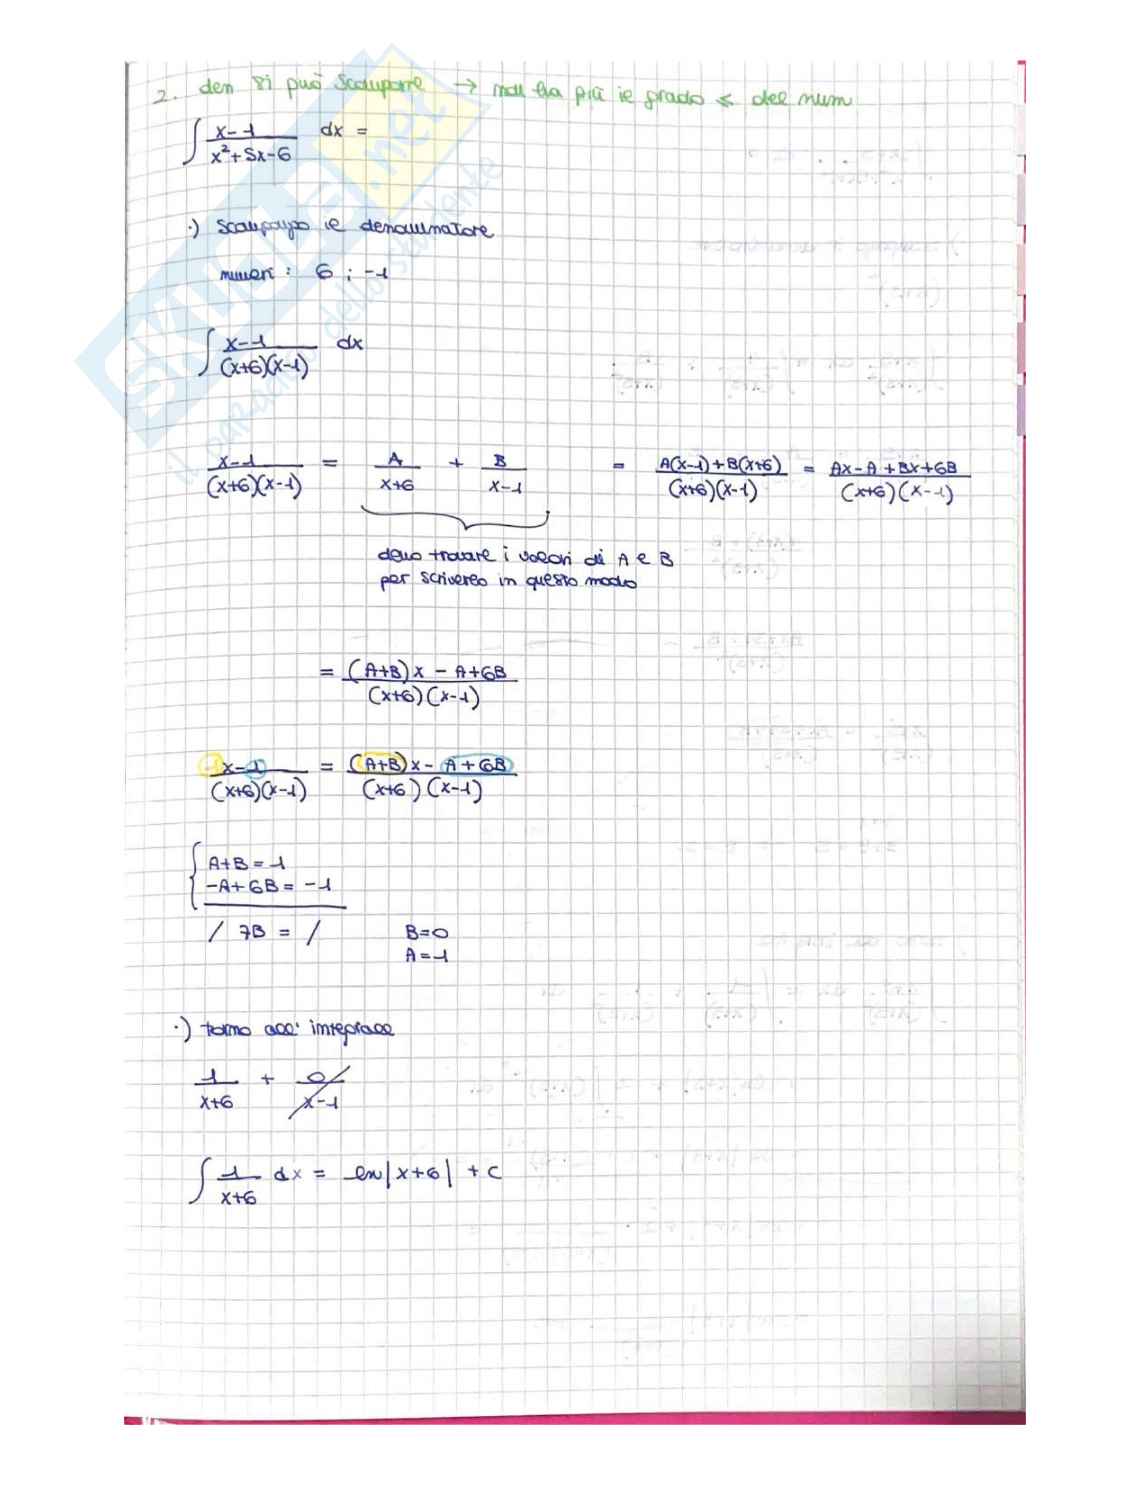 2. den si può scomporre → non ha più il grado ≤ del num
∫ x-1 / x²+5x-6 dx =
·) Scompongo il denominatore
numeri : 6 ; -1
∫ x-1 / (x+6)(x-1) dx
x-1 / (x+6)(x-1) = A / x+6 + B / x-1 = A(x-1)+B(x+6) / (x+6)(x-1) = Ax-A+Bx+6B / (x+6)(x-1)
devo trovare i valori di A e B
per scriverlo in questo modo
= (A+B)x - A+6B / (x+6)(x-1)
1x-1 / (x+6)(x-1) = (A+B)x - A+6B / (x+6)(x-1)
{ A+B = 1
-A+6B = -1
/ 7B = / B=0
A=1
·) torno all' integrale
1 / x+6 + 0 / x-1
∫ 1 / x+6 dx = ln|x+6| + c
SKUOLA.net
il paradiso dello studente